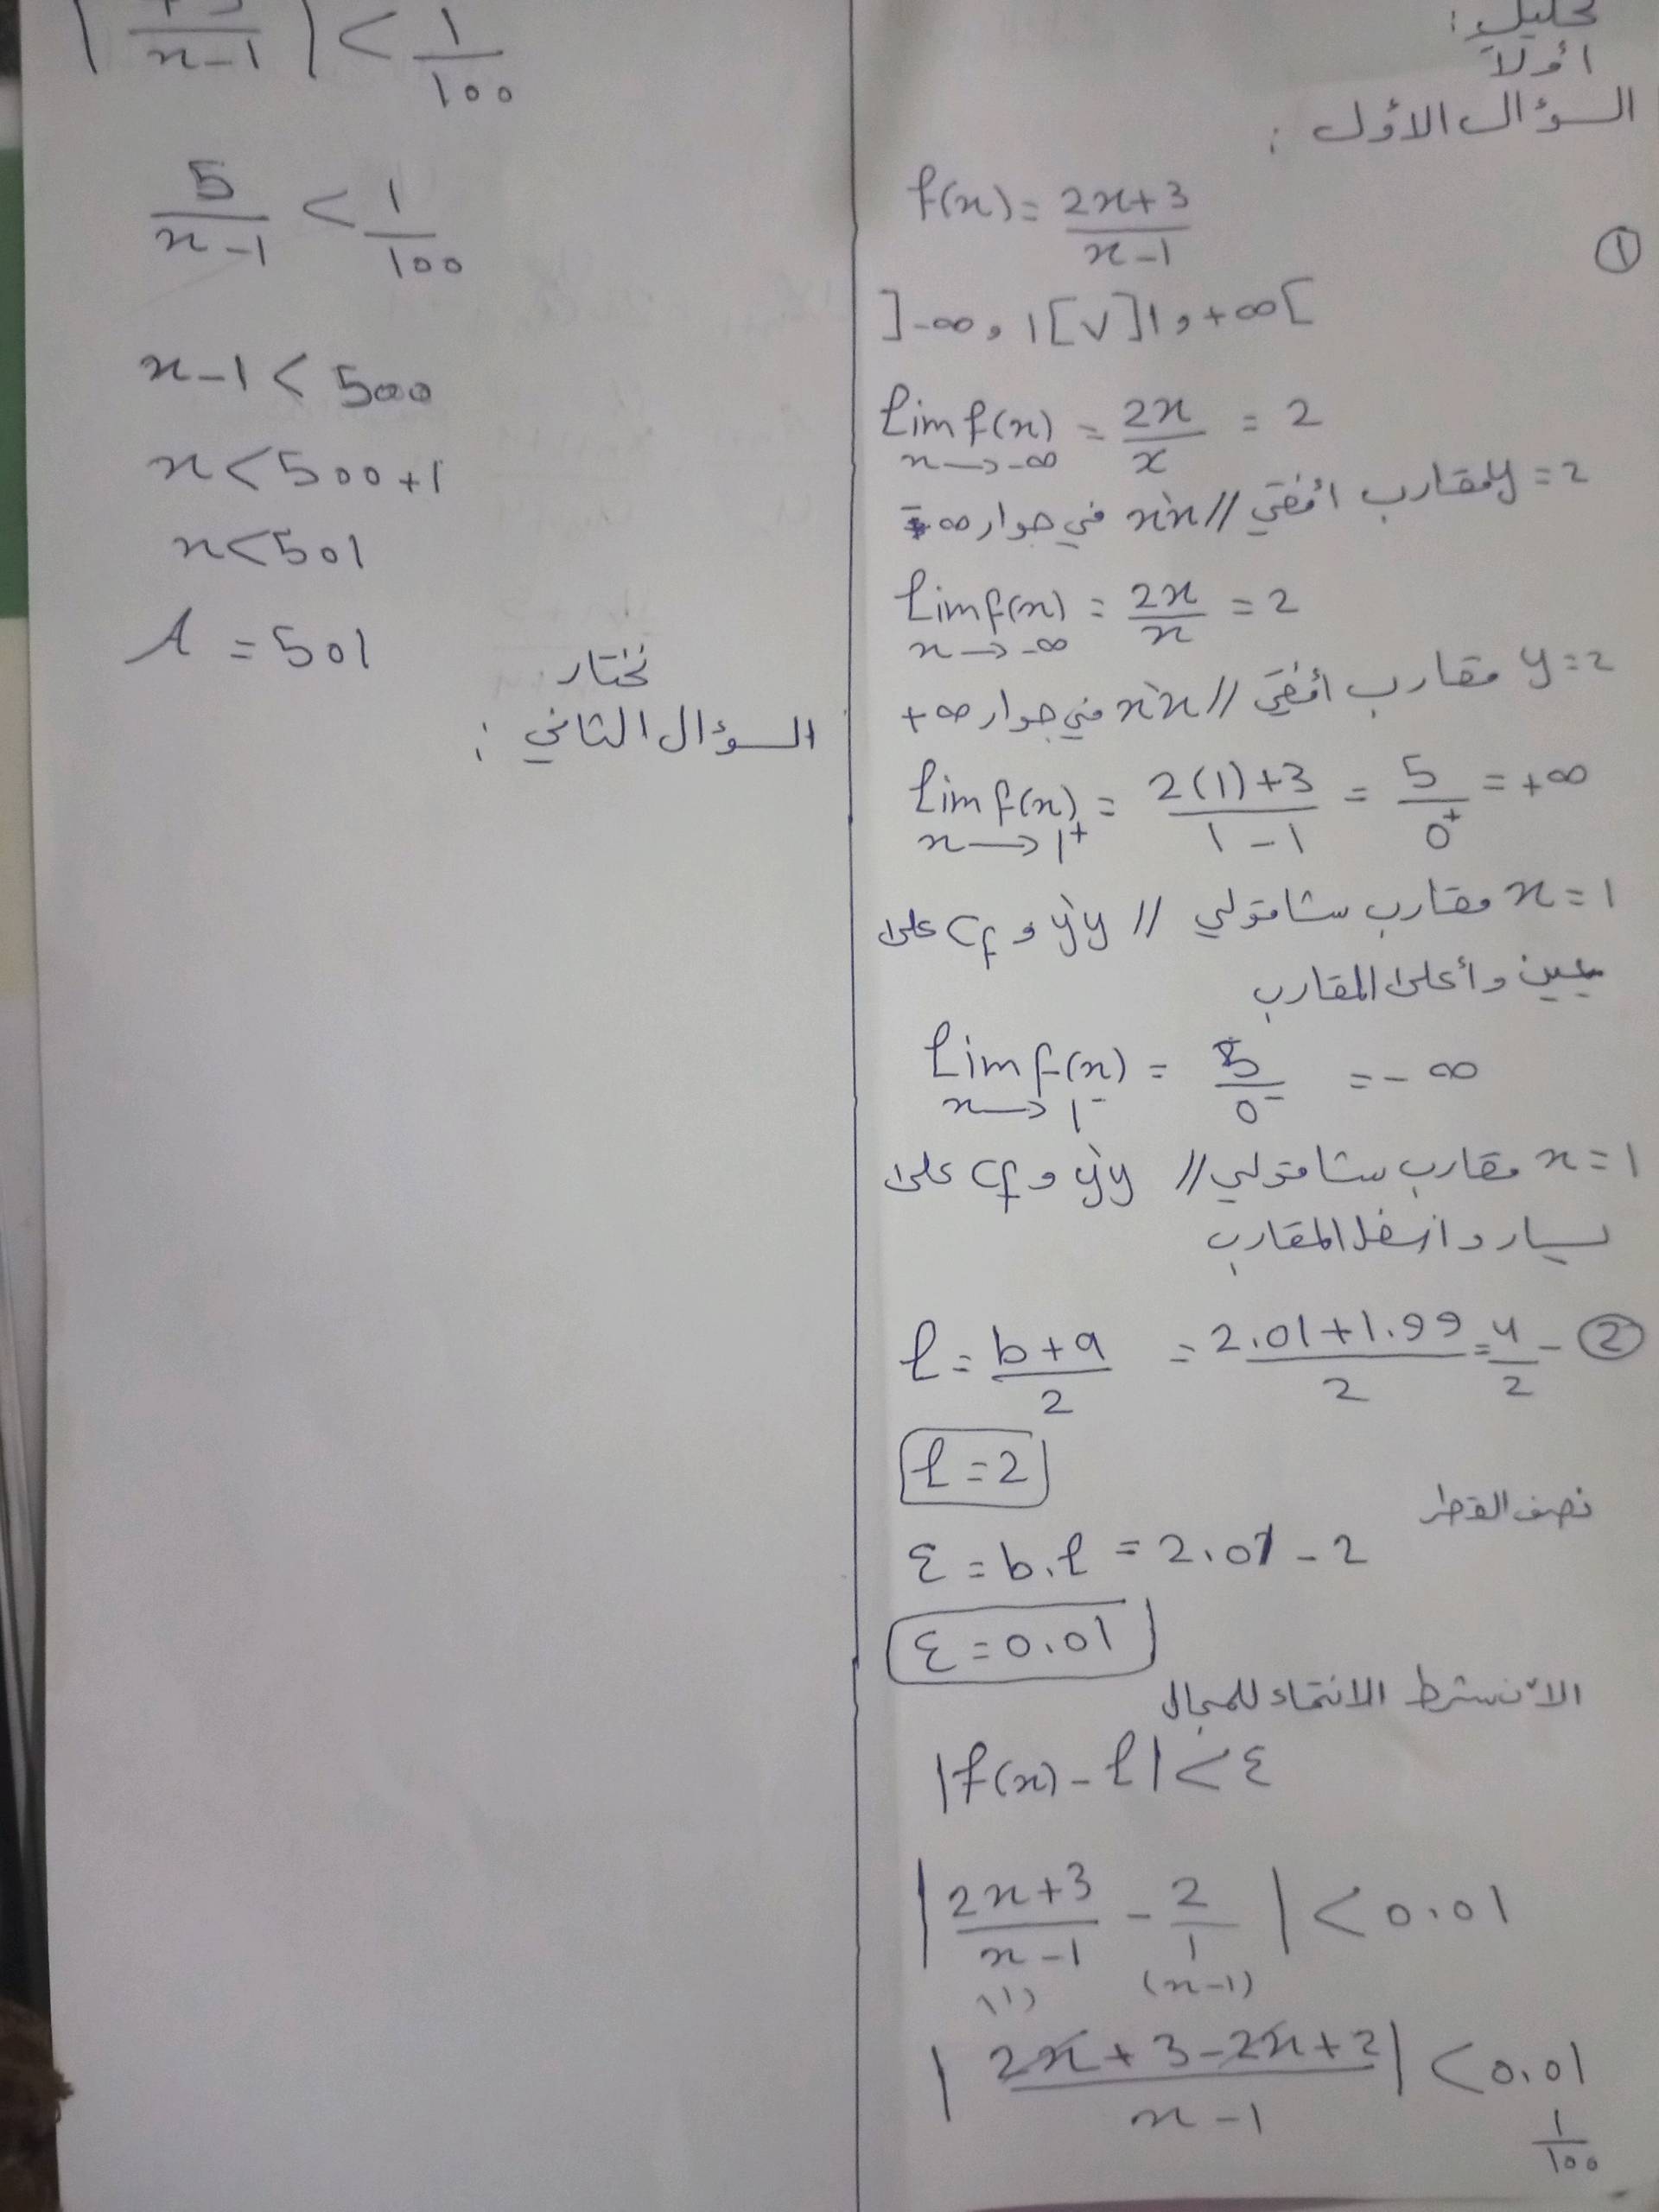 تحليل :
أولاً
السؤال الأول :
f(x) = 2x+3 / x-1
①
]-∞, 1[ ∨ ]1, +∞[
lim f(x) = 2x / x = 2
x→-∞
y=2 مقارب أفقي // x'x في جوار -∞
lim f(x) = 2x / x = 2
x→-∞
y=2 مقارب أفقي // x'x في جوار +∞
lim f(x) = 2(1)+3 / 1-1 = 5 / 0⁺ = +∞
x→1⁺
x=1 مقارب شاقولي // y'y و Cf على
يمين وأعلى المقارب
lim f(x) = 5 / 0⁻ = -∞
x→1⁻
x=1 مقارب شاقولي // y'y و Cf على
يسار و أسفل المقارب
② - l = b+a / 2 = 2.01+1.99 / 2 = 4 / 2
l = 2
نصف القطر
ε = b.l = 2.01 - 2
ε = 0.01
الآن شرط الانتماء للمجال
|f(x) - l| < ε
| 2x+3 / x-1 - 2 / 1 | < 0.01
(1) (x-1)
| 2x+3-2x+2 / x-1 | < 0.01
1 / 100
| +5 / x-1 | < 1 / 100
5 / x-1 < 1 / 100
x-1 < 500
x < 500+1
x < 501
نختار A = 501
السؤال الثاني :